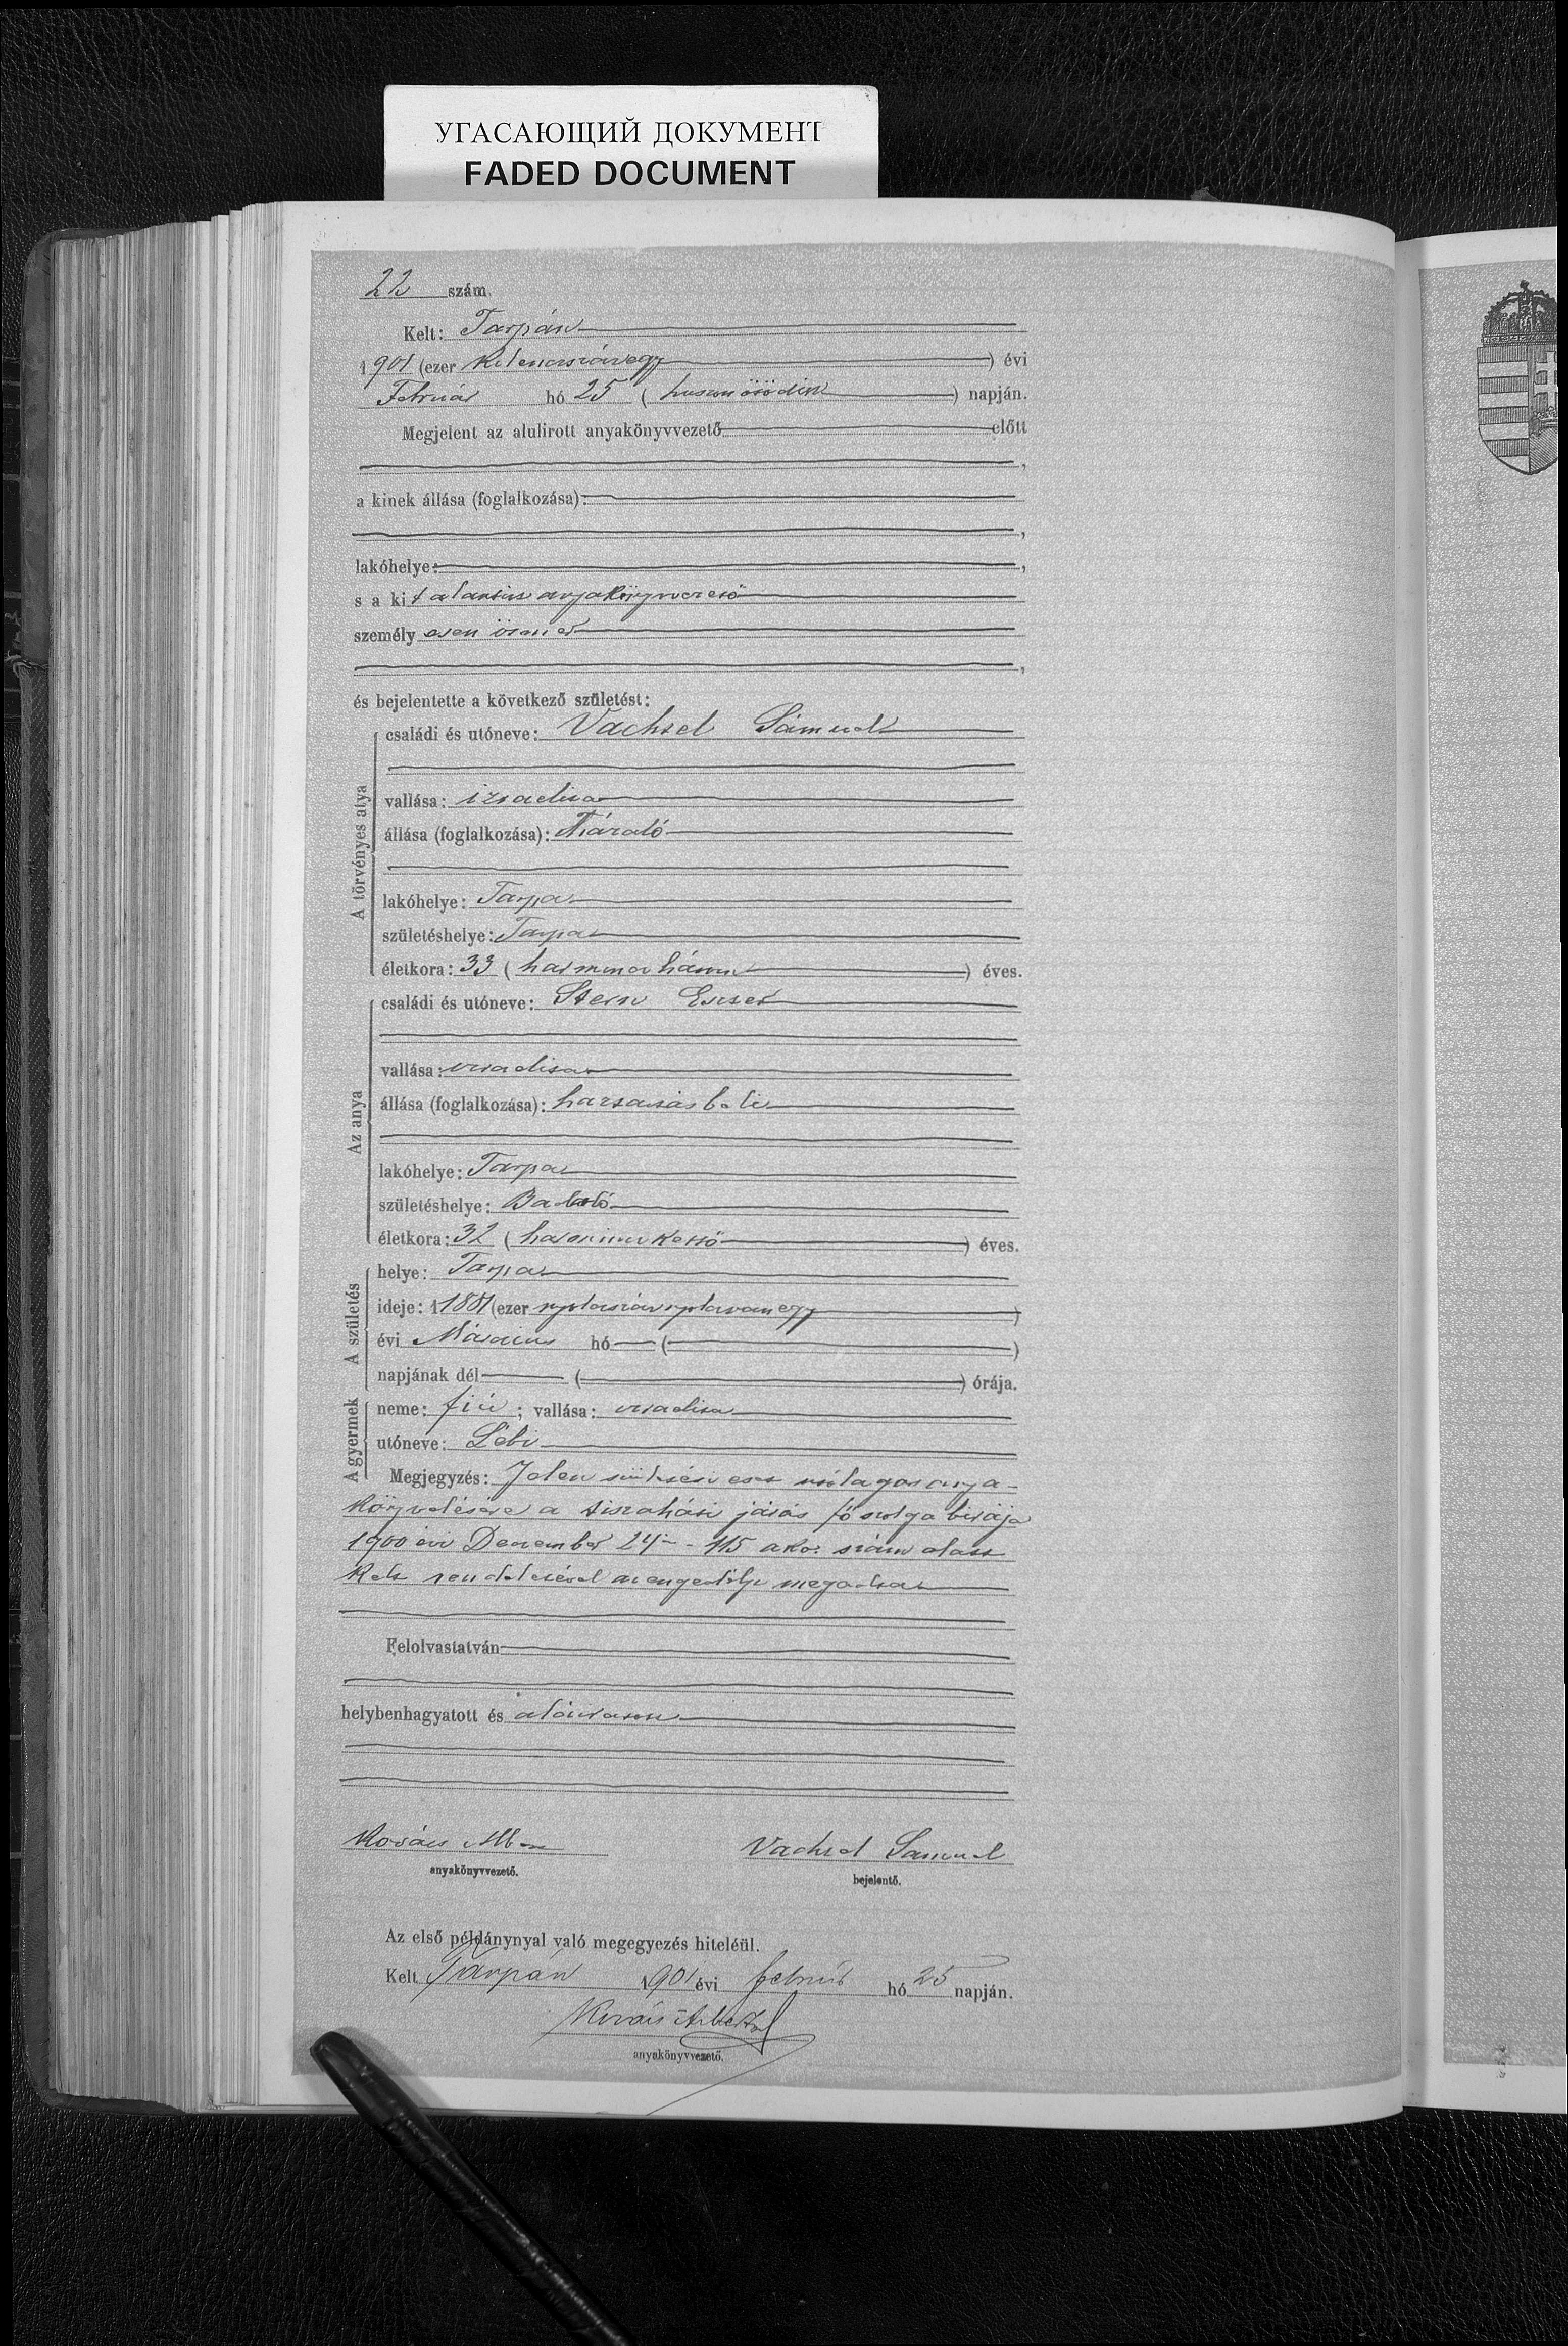 УГАСАЮЩИЙ ДОКУМЕНТ
FADED DOCUMENT
22 szám.
Kelt: Tarpán
1901 (ezer kilencszázegy) évi
Február hó 25 (huszonötödik) napján.
Megjelent az alulirott anyakönyvvezető előtt
a kinek állása (foglalkozása):
lakóhelye:
s a kit alantirt anyakönyvvezető
személyesen ösmer
és bejelentette a következő születést:
A törvényes atya
családi és utóneve: Vachsel Sámuel
vallása: izraelita
állása (foglalkozása):
lakóhelye: Tarpa
születéshelye: Tarpa
életkora: 33 (harminchárom) éves.
Az anya
családi és utóneve: Stern Eszter
vallása: izraelita
állása (foglalkozása): háztartásbeli
lakóhelye: Tarpa
születéshelye:
életkora: 32 (harminckettő) éves.
A születés
helye: Tarpa
ideje: 1 (ezer nyolcszáznyolcvanegy)
évi Március hó ( )
napjának dél ( ) órája.
A gyermek
neme: fiú; vallása: izraelita
utóneve: Lébi
Megjegyzés: Jelen születési eset utólagos anya-
könyvelésére a tiszaháti járás főszolgabirája
1900 évi December 24 - 415 ako: szám alatt
kelt rendeletével az engedélyt megadta
Felolvastatván
helybenhagyatott és aláiratott
Kovács Albert
anyakönyvvezető.
Vachsel Samuel
bejelentő.
Az első példánynyal való megegyezés hiteléül.
Kelt Tarpán 1901 évi február hó 25 napján.
Kovács Albert
anyakönyvvezető.